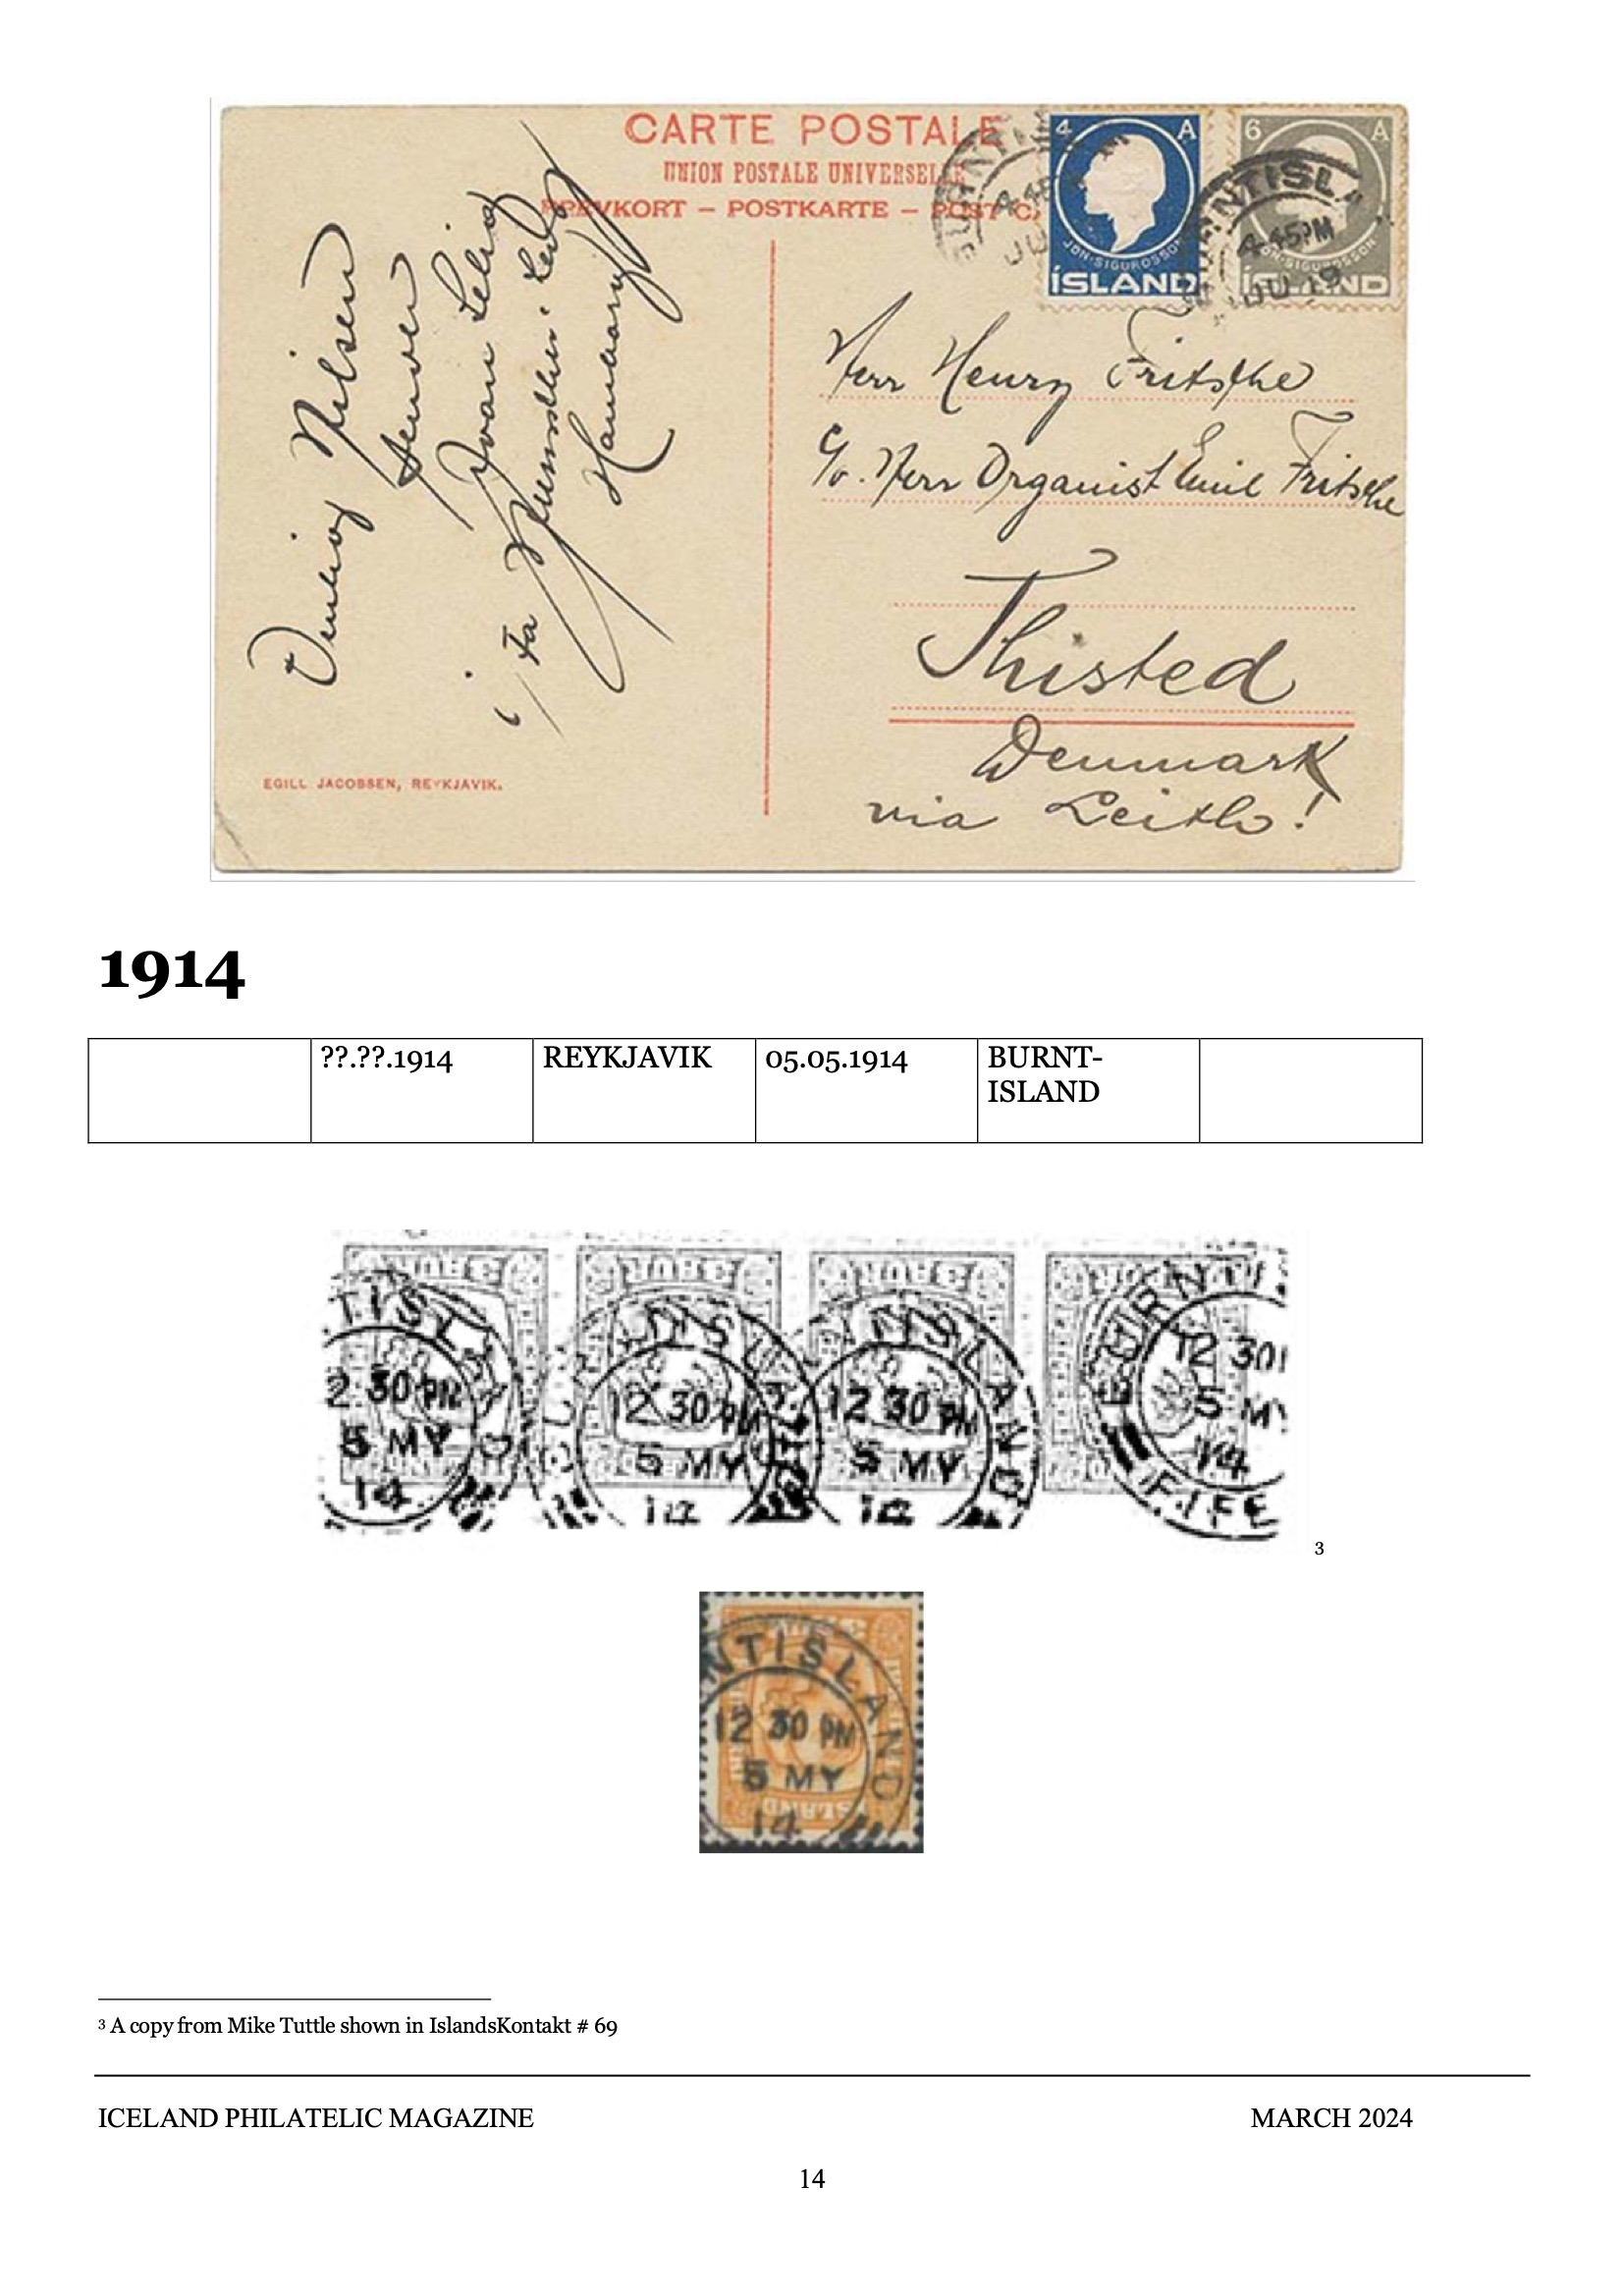 CARTE POSTALE
UNION POSTALE UNIVERSELLE
BREVKORT – POSTKARTE – POST CA
4 A
JÓN·SIGURÐSSON
ÍSLAND
6 A
JÓN·SIGURÐSSON
ÍSLAND
BURNTISLA
4.45PM
JU 19
Nilsen
i Fa
Herr Henry Fritsche
c/o. Herr Organist Emil Fritsche
Thisted
Denmark
via Leith!
EGILL JACOBSEN, REYKJAVIK.
1914
??.??.1914 REYKJAVIK 05.05.1914 BURNT-
ISLAND
TISLAND
2 30 PM
5 MY
14
12 30 PM
5 MY
14
12 30 PM
5 MY
14
BURNTIS
12 30
5 MY
14
FIFE
3
NTISLAND
12 30 PM
5 MY
14
3 A copy from Mike Tuttle shown in IslandsKontakt # 69
ICELAND PHILATELIC MAGAZINE MARCH 2024
14